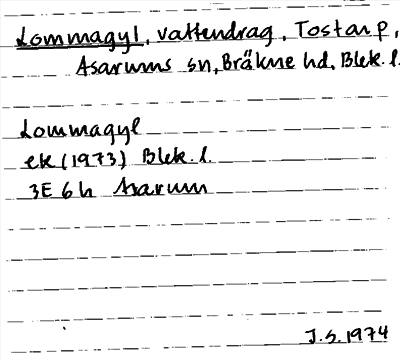 Lommagyl, vattendrag, Tostarp,
Asarums sn, Bräkne hd, Blek. l.
Lommagyl
ek (1973) Blek. l.
3E 6h Asarum
J.S. 1974